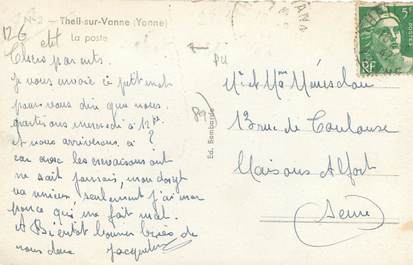 Nº 2 - Theil-sur-Vanne (Yonne)
La poste
Chers parents.
Je vous envoie ce petit mot
pour vous dire que nous
partirons mercredi à 12h
et nous arriverons à ?
car avec les
ne sait jamais, mon doigt
va mieux seulement j'ai mon
pouce qui me fait mal.
A Bientôt bonnes bises de
nous deux Jacqueline
Ed. Bombarde
89
5F
POSTES
RF
Mr et Mme
13 rue de Toulouse
Maisons Alfort
Seine